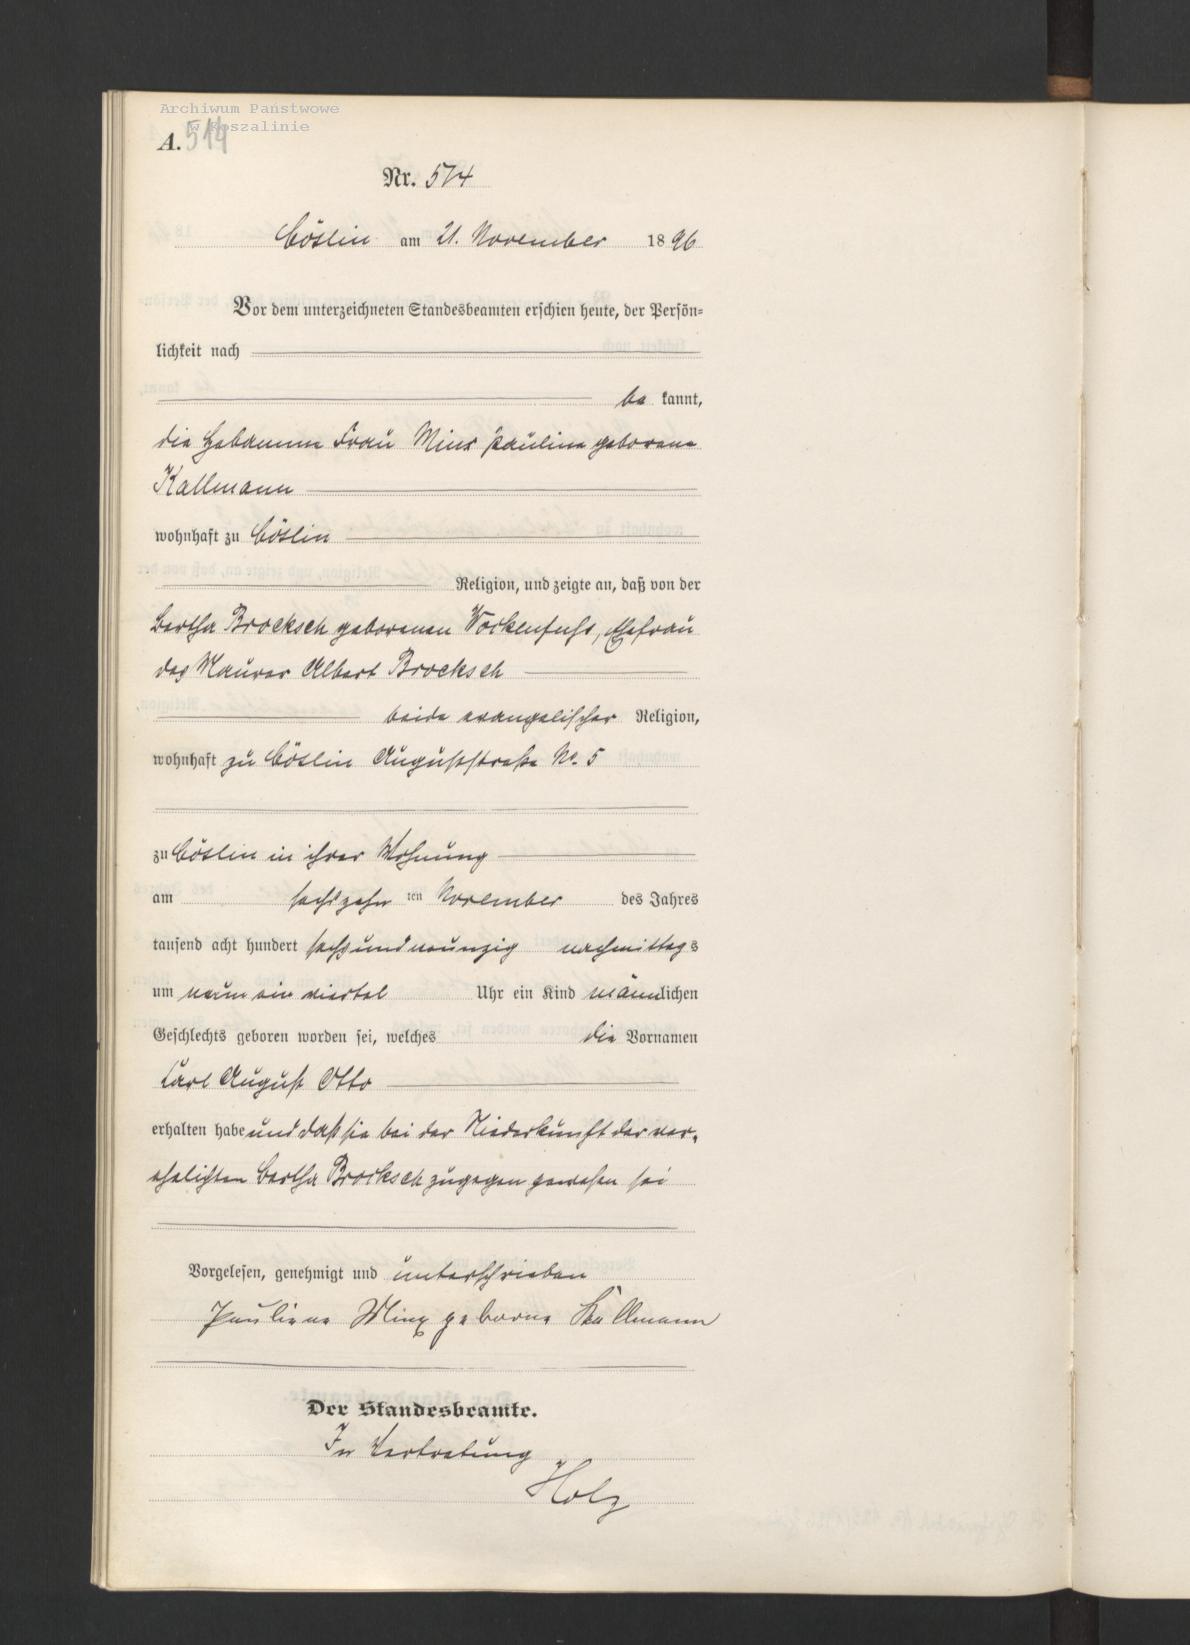 Archiwum Państwowe
w Koszalinie
A. 514
Nr. 514
Cöslin am 21. November 1896
Vor dem unterzeichneten Standesbeamten erschien heute, der Persön-
lichkeit nach
be kannt,
die Hebamme Frau Minx Pauline geborene
Kallmann
wohnhaft zu Cöslin
Religion, und zeigte an, daß von der
Bertha Brocksch geborenen Vockenfuhs, Ehefrau
des Maurer Albert Brocksch
beide evangelischer Religion,
wohnhaft zu Cöslin Auguststraße No. 5
zu Cöslin in ihrer Wohnung
am sechszehn ten November des Jahres
tausend acht hundert sechsundneunzig nachmittags
um neun ein viertel Uhr ein Kind männlichen
Geschlechts geboren worden sei, welches die Vornamen
Carl August Otto
erhalten habe und daß sie bei der Niederkunft der ver-
ehelichten Bertha Brocksch zugegen gewesen sei
Vorgelesen, genehmigt und unterschrieben
Pauliene Minx geborne Kallmann
Der Standesbeamte.
In Vertretung
Holz